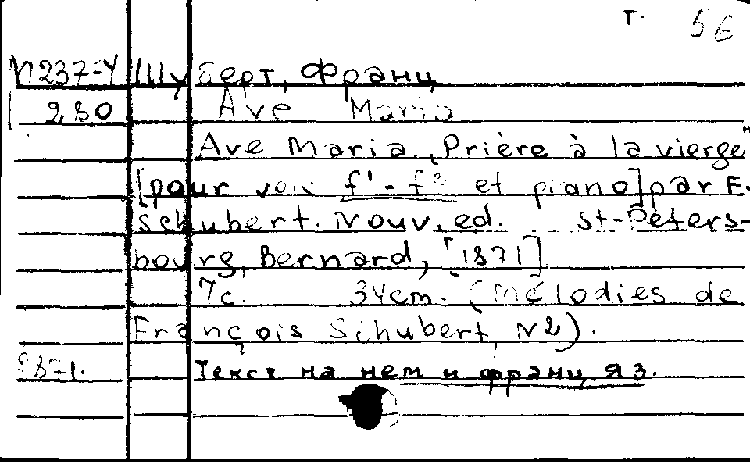 т. 56
М237-У Шуберт, Франц
280 Ave Maria
Ave Maria, Prière à la vierge
[pour voix f'-f² et piano] par F.
Schubert. Nouv. ed. St-Peters-
bourg, Bernard, [1871]
7с. 34cm. (Mélodies de
François Schubert, N2).
Текст на нем и франц яз.